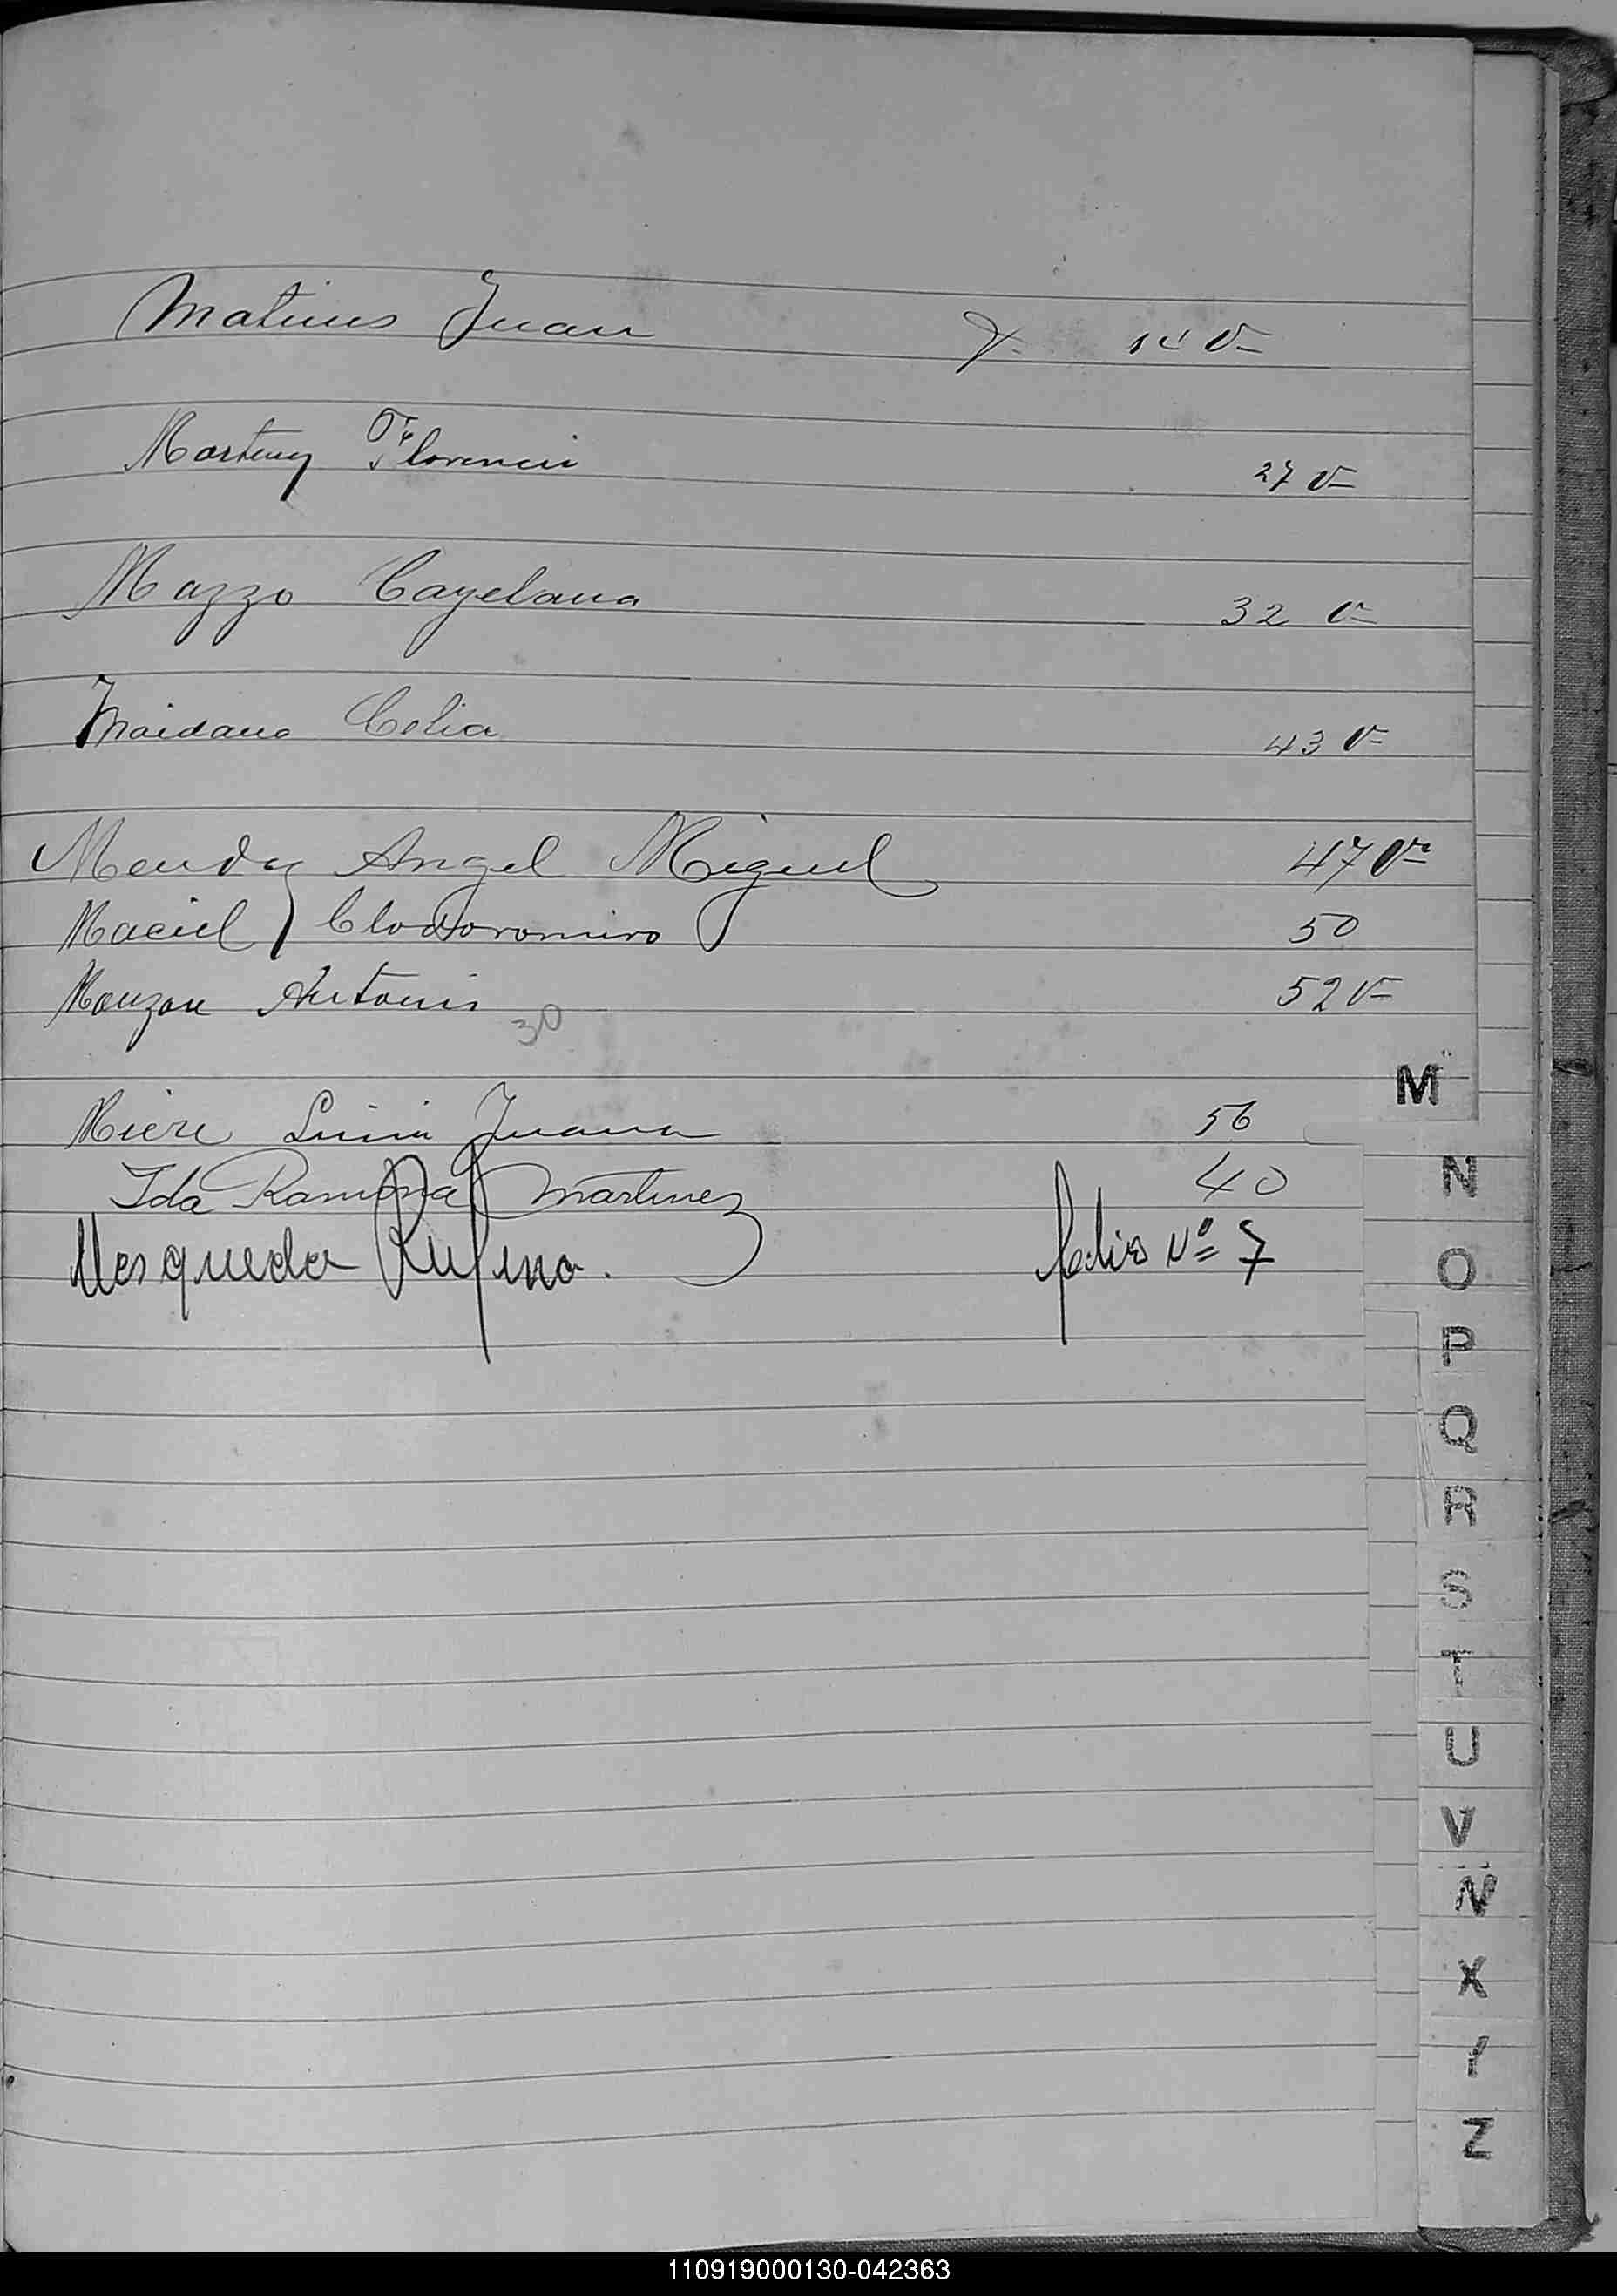 Juan 14 V-
Florencio 27 V-
Mazzo Cayelana 32 V-
Maidana Celia 43 V-
Mendez Angel Miguel 47 V-
Maciel Clodoromiro 50
Monzon Antonio 52 V-
30
Juana 56
Ida Ramona Martinez 40
Mosqueda Rufino. folio Nº 7
M
N
O
P
Q
R
S
T
U
V
X
Y
Z
110919000130-042363